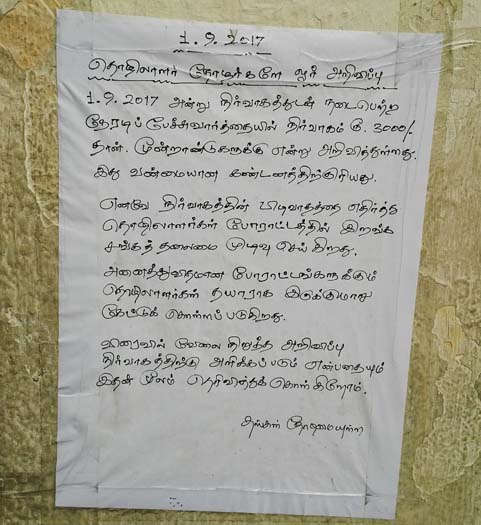 1.9.2017
தொழிலாளர் தோழர்களே ஓர் அறிவிப்பு
1.9.2017 அன்று நிர்வாகத்துடன் நடைபெற்ற
நேரடிப் பேச்சுவார்த்தையில் நிர்வாகம் ரூ. 3000/-
தான். மூன்றாண்டுகளுக்கு என்று அறிவித்துள்ளது.
இது வண்மையான கண்டனத்திற்குரியது.
எனவே நிர்வாகத்தின் பிடிவாதத்தை எதிர்த்து
தொழிலாளர்கள் போராட்டத்தில் இறங்க
சங்கத் தலைமை முடிவு செய்கிறது.
அனைத்துவிதமான போராட்டங்களுக்கும்
தொழிலாளர்கள் தயாராக இருக்குமாறு
கேட்டுக் கொள்ளப்படுகிறது.
விரைவில் வேலை நிறுத்த அறிவிப்பு
நிர்வாகத்திற்கு அளிக்கப்படும் என்பதையும்
இதன் மூலம் தெரிவித்துக்கொள்கிறோம்.
தங்கள் தோழமையுள்ள